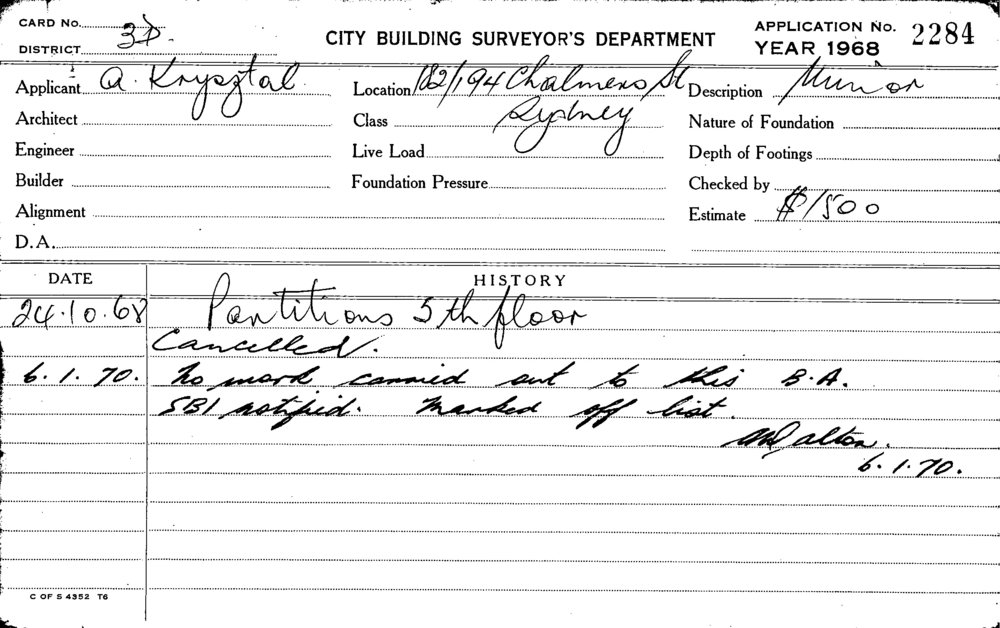 CARD No.
DISTRICT 3D.
CITY BUILDING SURVEYOR'S DEPARTMENT
APPLICATION No. 2284
YEAR 1968
Applicant A. Krysztal
Location 182/194 Chalmers St
Sydney
Description Minor
Architect
Class
Nature of Foundation
Engineer
Live Load
Depth of Footings
Builder
Foundation Pressure
Checked by
Alignment
Estimate $1500
D.A.
DATE HISTORY
24.10.68 Partitions 5th floor
Cancelled.
6.1.70. No work carried out to this B.A.
SBI notified. Marked off list.
Dalton.
6.1.70.
C OF S 4352 T6